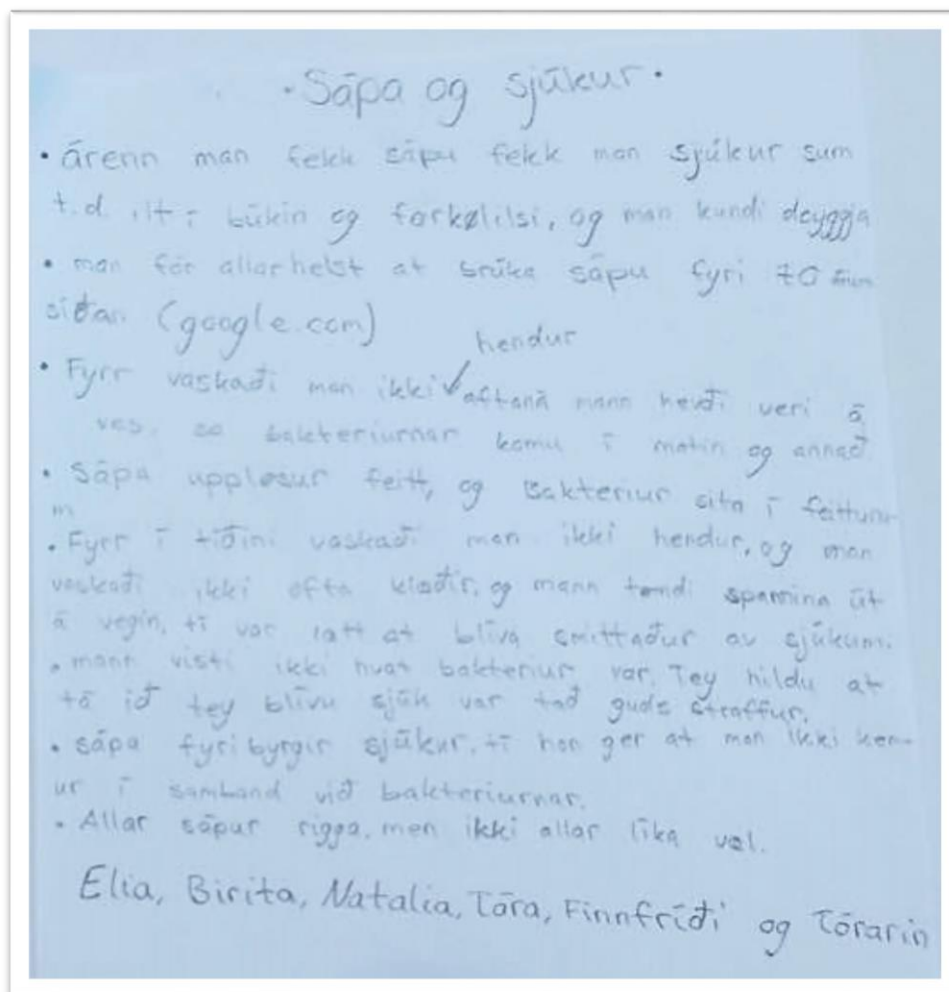 · Sápa og sjúkur ·
• árenn man fekk sápu fekk man sjúkur sum
t.d. ilt í búkin og forkølilsi, og man kundi doyggja
• man fór allarhelst at brúka sápu fyri 70
síðan (google.com)
hendur
• Fyrr vaskaði man ikki aftaná mann hevði veri á
ves, so bakteriurnar komu í matin og annað
• Sápa uppløsur feitt, og Bakteriur sita í feittunu
m
• Fyrr í tíðini vaskaði man ikki hendur, og man
vaskaði ikki ofta klæðir, og mann tømdi spannina út
á vegin, tí var lætt at blíva smittaður av sjúkum.
• mann visti ikki hvat bakteriur var. Tey hildu at
tá ið tey blivu sjúk var tað guds straffur.
• sápa fyribyrgir sjúkur, tí hon ger at man ikki kem-
ur í samband við bakteriurnar.
• Allar sápur rigga, men ikki allar líka væl.
Elia, Birita, Natalia, Tóra, Finnfríði og Tórarin